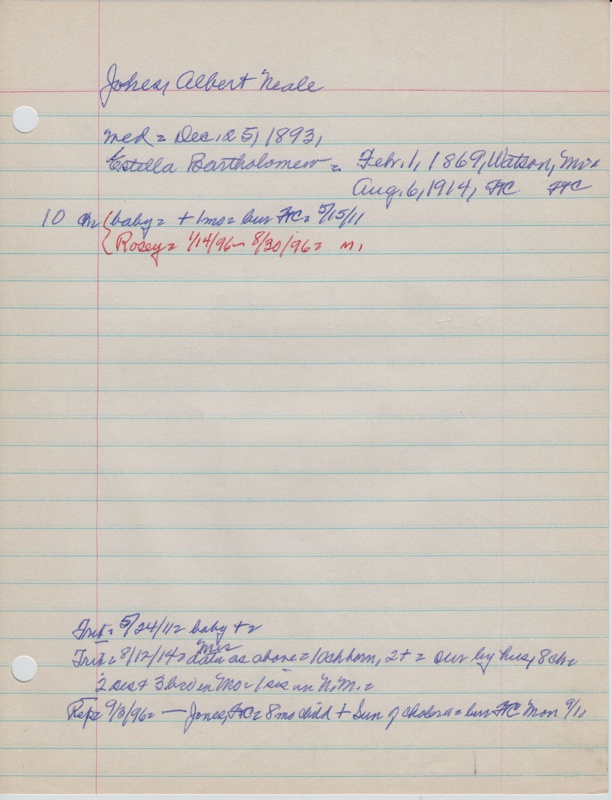 Jones, Albert Neale
med = Dec. 25, 1893,
Estella Bartholomew = Feb. 1, 1869, Watson, Mo =
Aug. 6, 1914, FC FC
10 ch { baby = + 1mo = bur FC = 5/15/11
{ Rosey = 1/14/96 - 8/30/96 = m,
5/24/11 = baby + =
Mrs
8/12/14 = data as above = 10 ch born, 2 + = sur by hus, 8 ch =
2 sis + 3 bro in Mo = 1 sis in N.M. =
Rep = 9/3/96 = — Jones, FC = 8 mo child + Sun of cholera = bur FC Mon